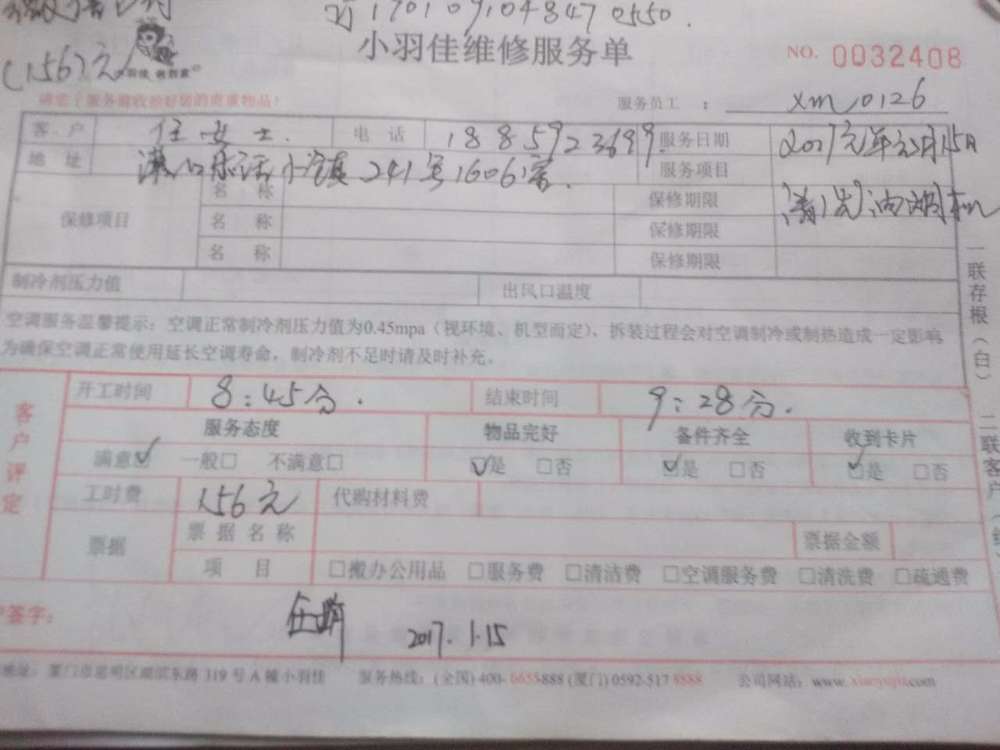 订170109104847 0550.
(156)元
小羽佳维修服务单
NO. 0032408
服务员工 : xm0126
客户 任女士. 电话 18859723699 服务日期 2017元年元月15日
地址 小镇241号1606室. 服务项目 清洗油烟机
保修项目 名称 保修期限
名称 保修期限
名称 保修期限
制冷剂压力值 出风口温度
空调服务温馨提示：空调正常制冷剂压力值为0.45mpa（视环境、机型而定）、拆装过程会对空调制冷或制热造成一定影响
为确保空调正常使用延长空调寿命，制冷剂不足时请及时补充。
一联存根（白）
二联客户
客户评定
开工时间 8:45分. 结束时间 9:28分.
服务态度 物品完好 备件齐全 收到卡片
满意☑ 一般□ 不满意□ ☑是 □否 ☑是 □否 ☑是 □否
工时费 156元 代购材料费
票据 票据名称 票据金额
项目 □搬办公用品 □服务费 □清洁费 □空调服务费 □清洗费 □疏通费
签字： 2017.1.15
地址：厦门市思明区湖滨东路319号A幢小羽佳 服务热线：(全国)400-6655-888 (厦门) 0592-517 8888 公司网站：www.xiaoyujia.com